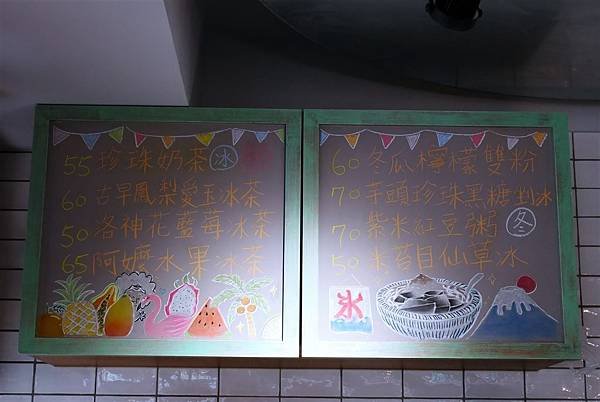 55 珍珠奶茶 冰
60 古早鳳梨愛玉冰茶
50 洛神花藍莓冰茶
65 阿嬤水果冰茶
60 冬瓜檸檬雙粉
70 芋頭珍珠黑糖剉冰
70 紫米紅豆粥 冬
50 米苔目仙草冰
氷